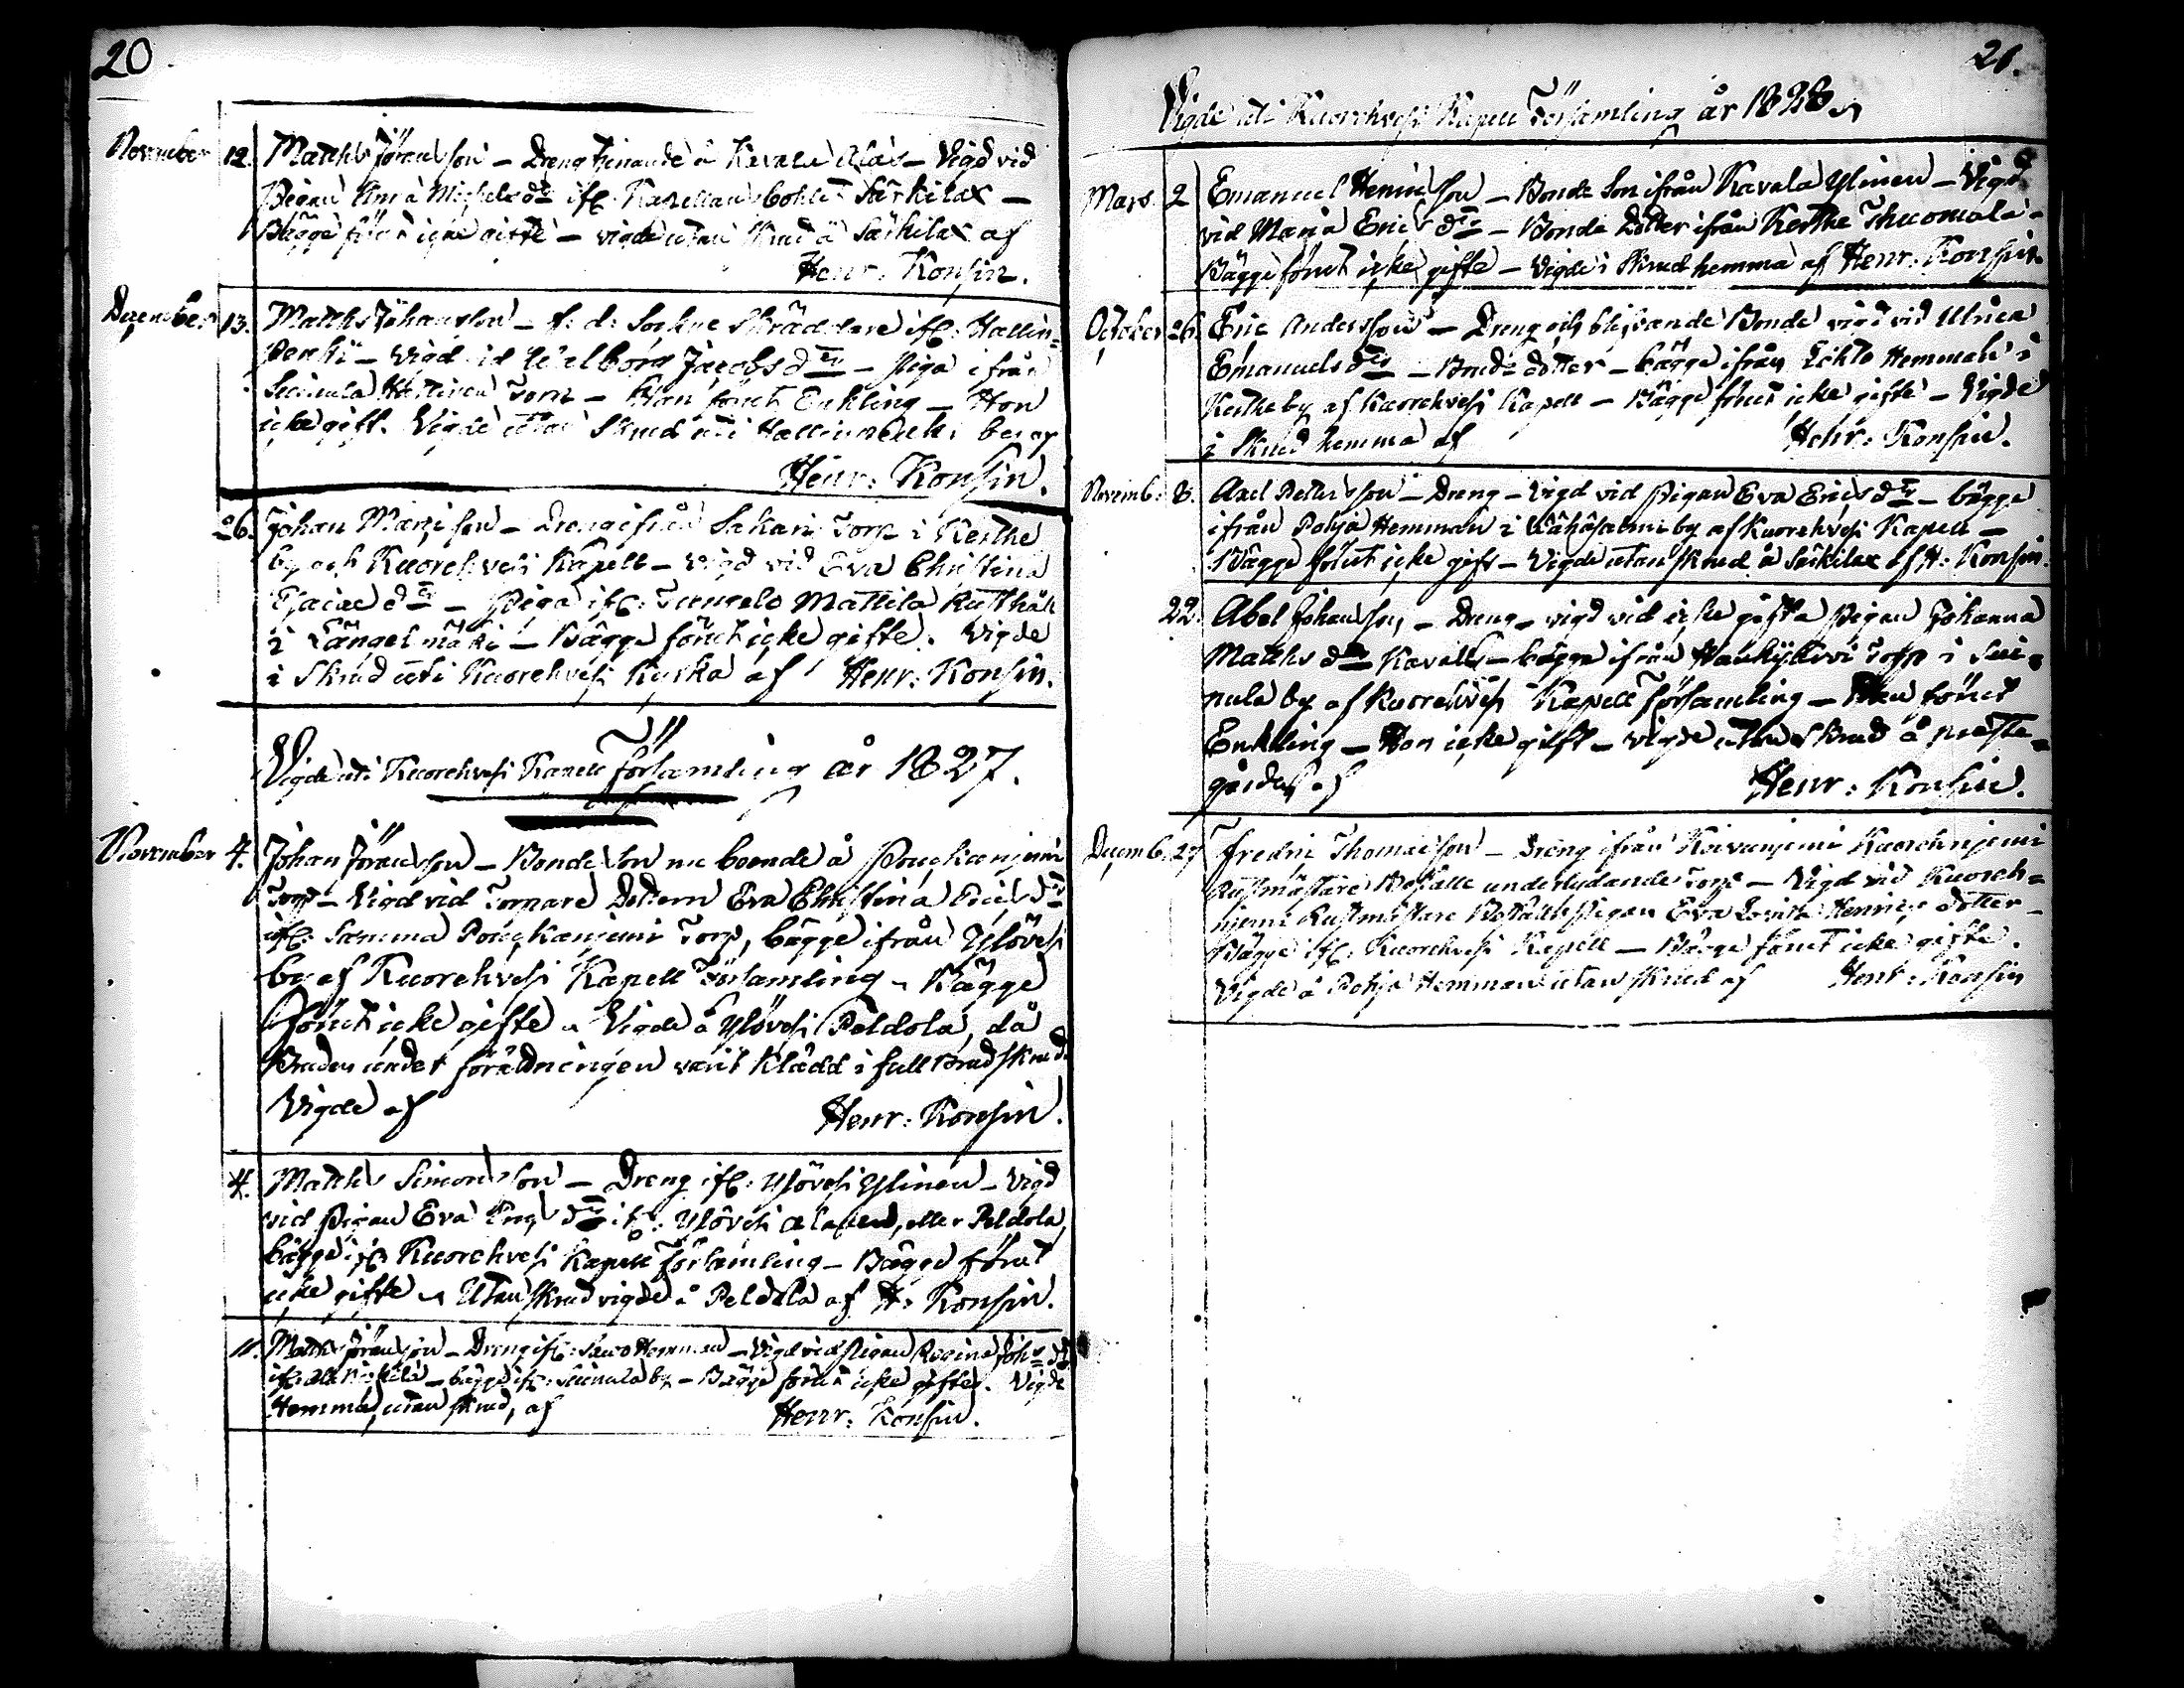 20
November 12. Matths Jöransson – Dreng tjenande å Kavala – Vigd vid
Pigan Anna Michelsdr ifr. Kapellans bohlet Särkilax –
Bägge förut icke gifte – vigde utan skrud å Särkilax af
Henr: Konsin.
December 13. Matths Johansson – f: d: Sockne Skräddare ifr: Hallin-
penki – Vigd vid Walborg Jacobs dr – Piga ifrån
Suinula Torp – Han förut Enkling – Hon
icke gift. Vigde utan Skrud uti Hallinpenki by af
Henr: Konsin.
26. Johan Mariæson – Dreng ifrån Sakari Torp i Kerthe
by och Kuorehvesi Kapell – vigd vid Eva Christina
Esaiæ dr – Piga ifr: Tunkelo Mattila Rusthåll
i Längelmäki – Bägge förut icke gifte. Vigde
i Skrud uti Kuorehvesi Kyrka af Henr: Konsin.
Vigde uti Kuorehvesi Kapell Församling år 1827.
November 4. Johan Jöransson – Bonde Son nu boende å Pougkanjemi
Torp – Vigd vid Torpare Dottern Eva Christina Erics dr
ifr. samma Pougkanjemi Torp, bägge ifrån Ylövesi
by af Kuorehvesi Kapell Församling – Bägge
förut icke gifte – Vigde å Ylövesi Peldola, då
Bruden under förrättningen varit klädd i full Brudskrud.
Vigde af Henr: Konsin.
4. Matths Simonsson – Dreng ifr: Ylövesi Ylinen – Vigd
vid Pigan Eva dr ifr: Ylövesi Alanen, eller Peldola,
bägge ifr. Kuorehvesi Kapell Församling – Bägge förut
icke gifte – Utan Skrud vigde å Peldola af H: Konsin.
11. Matths Jöransson – Dreng ifr: Hemman – Vigd vid Pigan Regina Johs dr
ifr. – bägge ifr. Suinula by – Bägge förut icke gifte. Vigde
Hemma, utan skrud, af Henr: Konsin.
21.
Vigde uti Kuorehvesi Kapell Församling år 1828
Mars 2 Emanuel Henricsson – Bonde Son ifrån Kavala Ylinen – Vigd
vid Maria Erics dr – Bonde Dotter ifrån Kerthe Thuomala –
Bägge förut icke gifte – Vigde i Skrud hemma af Henr: Konsin.
October 26. Eric Andersson – Dreng och blifvande Bonde vigd vid Ulrica
Emanuels dr – Bonde dotter – bägge ifrån Eskto Hemman i
Kerthe by af Kuorehvesi Kapell – Bägge förut icke gifte – Vigde
i Skrud hemma af Henr: Konsin.
Novemb: 8. Axel Pettersson – Dreng – Vigd vid Pigan Eva Erics dr – bägge
ifrån Pohja Hemman i by af Kuorehvesi Kapell –
Bägge förut icke gift – Vigde utan skrud å Särkilax af H: Konsin.
22. Abel Johansson – Dreng – vigd vid icke gifta Pigan Johanna
Matths dr – bägge ifrån Torp i Sui-
nula by af Kuorehvesi Kapell Församling – Han förut
Enkling – Hon icke gift – vigde utan skrud å preste-
gården af Henr: Konsin.
Decemb. 27 Fredric Thomasson – Dreng ifrån Koivunjemi Kuorehnjemi
Rustmästare Boställe underlydande Torp – Vigd vid Kuoreh-
njemi Rustmästare Boställs Pigan Eva Lovisa Henrics dotter –
Bägge ifr. Kuorehvesi Kapell – Bägge förut icke gifte.
Vigde å Pohja Hemman utan skrud af Henr: Konsin